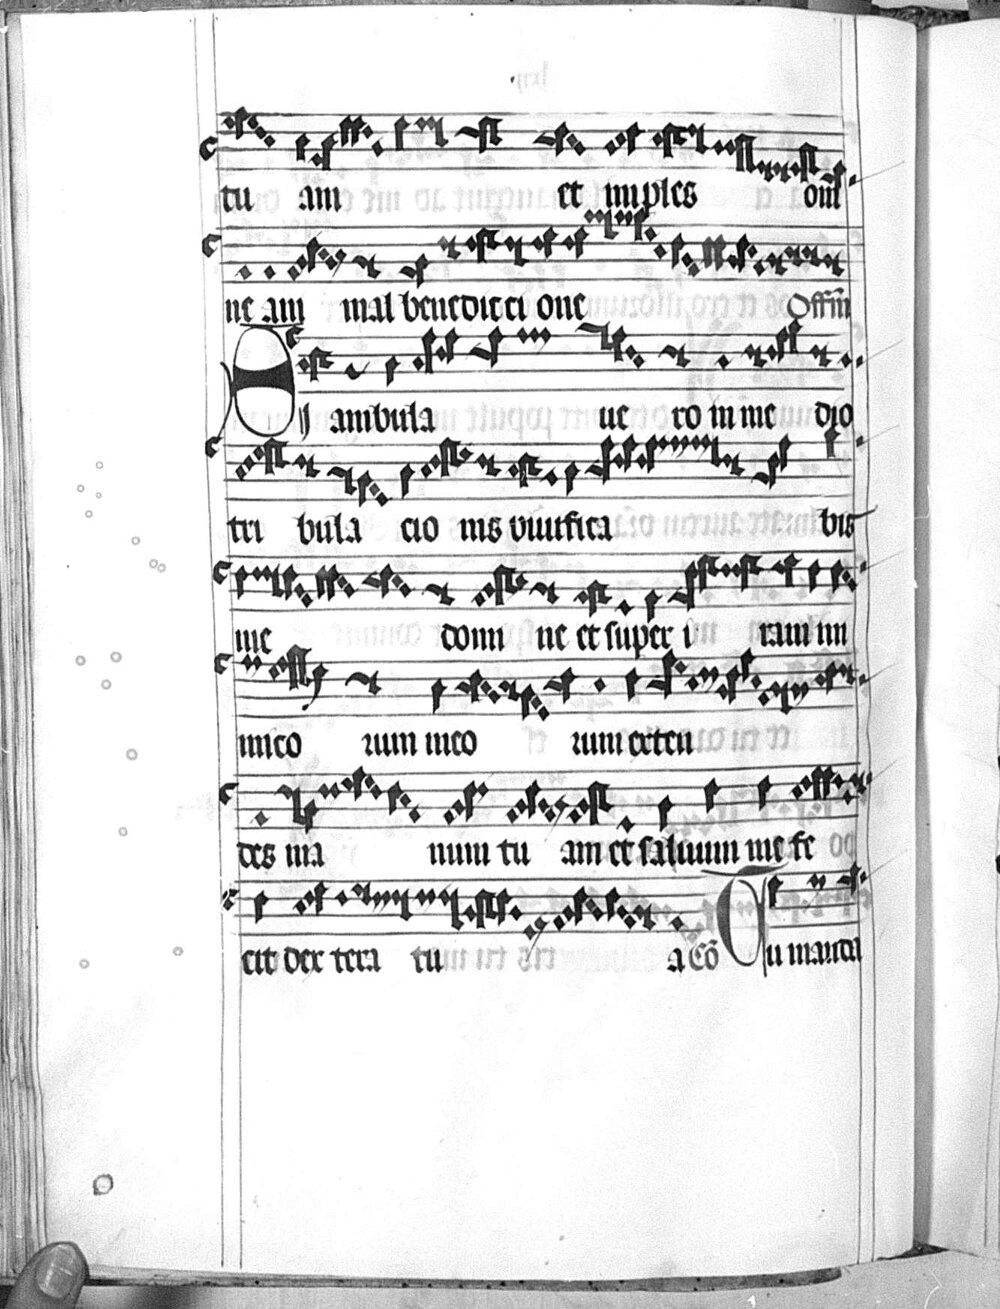 tu am et imples om
ne am mal benedicci one Offm
Si ambula ue ro in me dio
tri bula cio nis viuifica bis
me domi ne et super i ram in
imico rum meo rum exten
des ma num tu am et saluum me fe
cit dex tera tu a Cō Tu manda